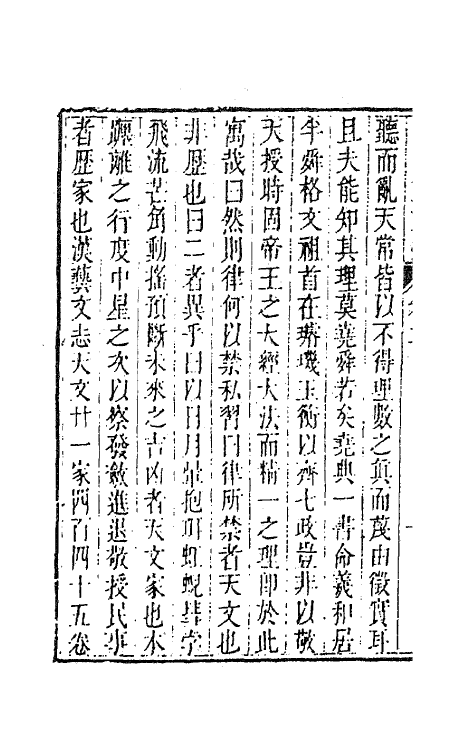 聽而亂天常皆以不得理數之眞而蔑由徵實耳
且夫能知其理莫堯舜若矣堯典一書命羲和居
半舜格文祖首在璿璣玉衡以齊七政豈非以敬
天授時固帝王之大經大法而精一之理卽於此
寓哉曰然則律何以禁私習曰律所禁者天文也
非歴也曰二者異乎曰以日月暈抱珥虹蜺彗孛
飛流芒角動搖預斷未來之吉凶者天文家也本
躔離之行度中星之次以察發斂進退敬授民事
者歴家也漢藝文志天文廿一家四百四十五卷